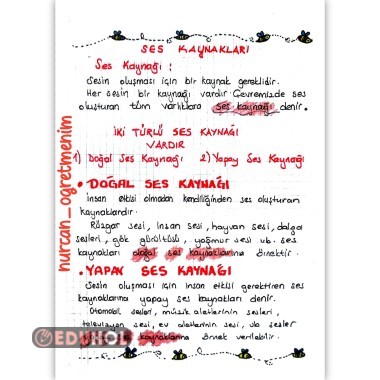 SES KAYNAKLARI
Ses Kaynağı :
Sesin oluşması için bir kaynak gereklidir.
Her sesin bir kaynağı vardır. Çevremizde ses
oluşturan tüm varlıklara ses kaynağı denir.
İKİ TÜRLÜ SES KAYNAĞI
VARDIR
1) Doğal Ses Kaynağı 2) Yapay Ses Kaynağı
• DOĞAL SES KAYNAĞI
İnsan etkisi olmadan kendiliğinden ses oluşturan
kaynaklardır.
Rüzgar sesi, insan sesi, hayvan sesi, dalga
sesleri, gök gürültüsü, yağmur sesi vb. ses
kaynakları doğal ses kaynaklarına örnektir.
• YAPAY SES KAYNAĞI
Sesin oluşması için insan etkisi gerektiren ses
kaynaklarına yapay ses kaynakları denir.
Otomobil sesleri, müzik aletlerinin sesleri,
televizyon sesi, ev aletlerinin sesi, vb sesler
kaynaklarına örnek verilebilir.
nurcan_ogretmenim
EDUHOL